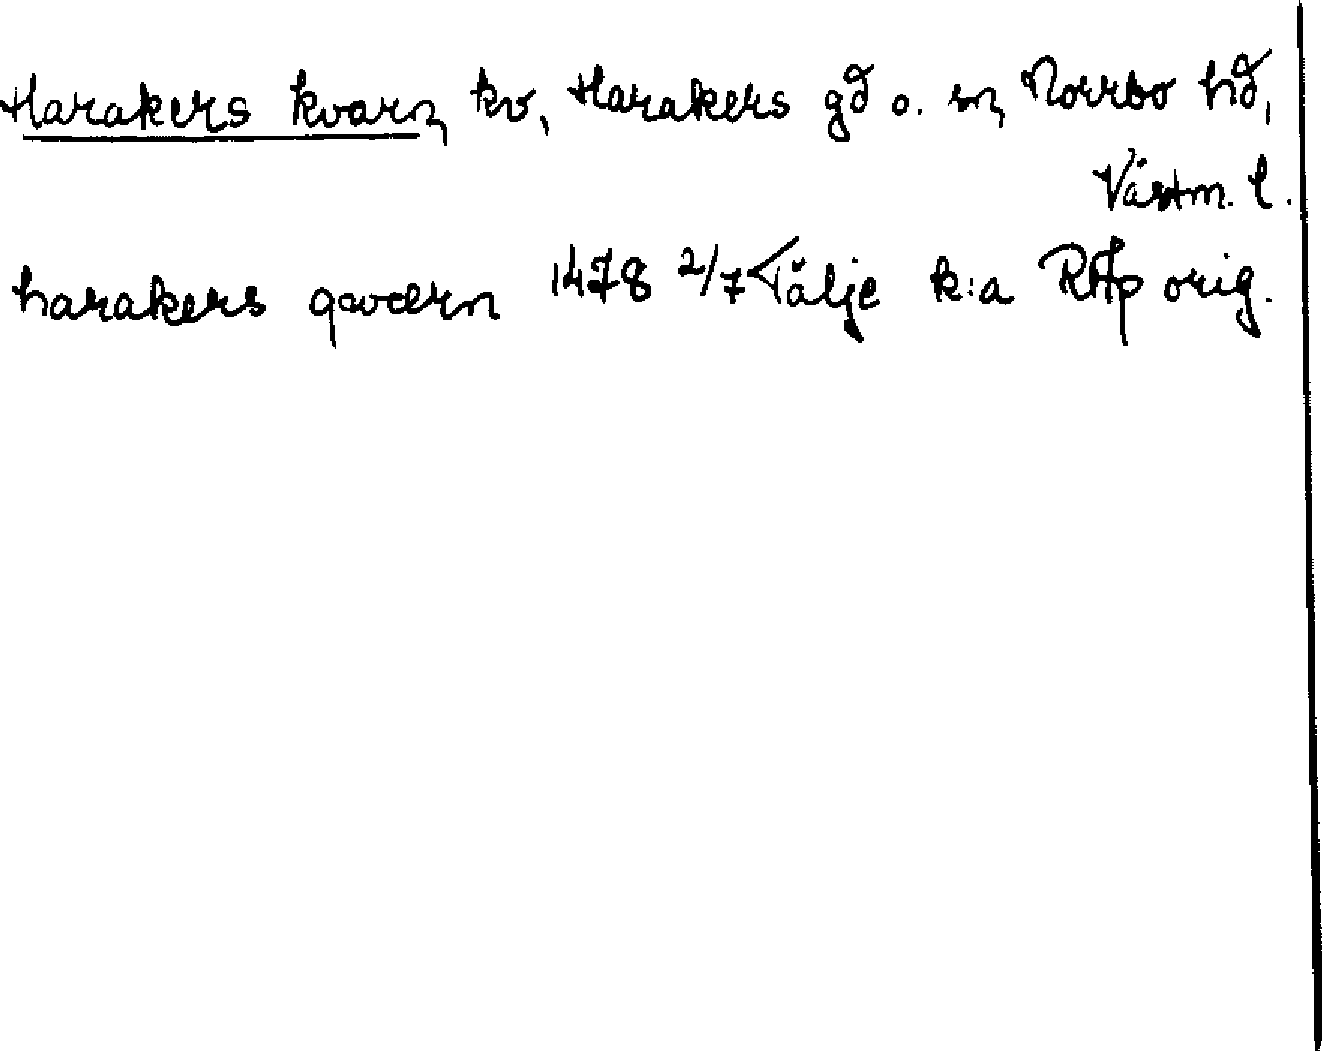 Harakers kvarn, kv, Harakers gd o. sn, Norrbo hd,
Västm. l.
harakers qwærn 1478 2/7 Tälje k:a RAp orig.